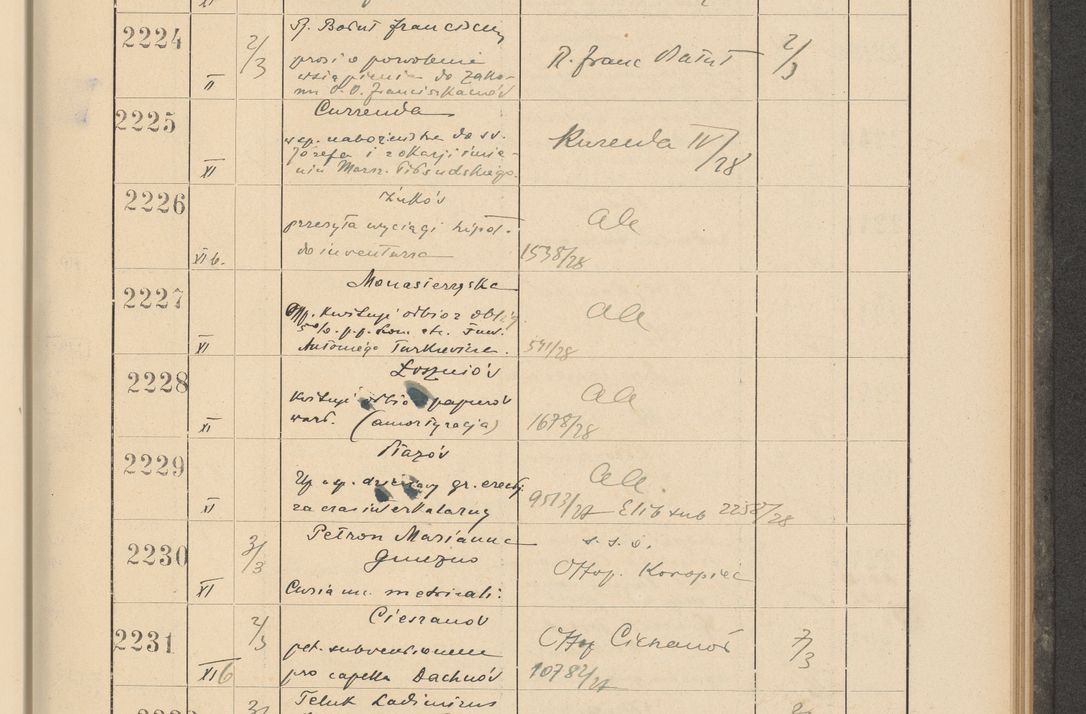 2224 II 2/3
Franciszek
prosi o pozwolenie
wstąpienia do Zako-
nu O. O. Franciszkanów
R. Franc 2/3
2225 XI
Currenda
wsp. nabożeństwa do św.
Józefa i z okazji imie-
nin Marsz. Piłsudskiego.
Kurenda IV/28
2226 XI b.
Żuków
przesyła wyciągi hipot.
do inwentarza
ala
1538/28
2227 XI
Monasterzyska
kwituje odbiór oblig.
5% p. p. kom etc. fun.
Antoniego Turkiewicza.
ala
541/28
2228 XI
Łoszniów
kwituje odbiór papierów
wart. (amortyzacja)
ala
1678/28
2229 XI
Płazów
dzierżawy gr. erekcj.
za czas interkalarny
ala
9513/27 Elib sub 2258/28
2230 XI 3/3
Petron Marianna
Gniezno
Curia metricali:
s. s. o.
Off. Koropiec
2231 XI 6 2/3
Cieszanów
pet. subvensionem
pro capella Dachnów
Off Cieszanów 7/3
10782/27
3/
Teluk Ladimirus